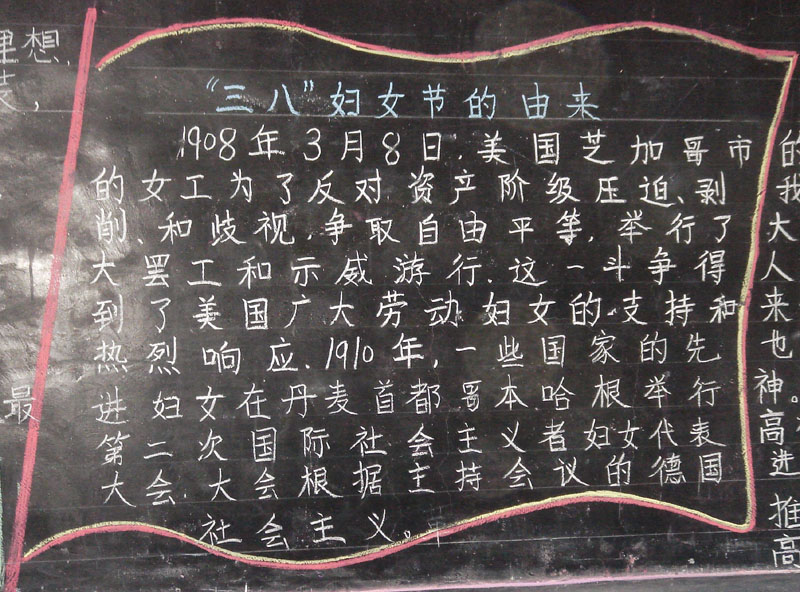 “三八”妇女节的由来
1908年3月8日.美国芝加哥市
的女工为了反对资产阶级压迫、剥
削、和歧视,争取自由平等,举行了
大罢工和示威游行.这一斗争得
到了美国广大劳动妇女的支持和
热烈响应.1910年,一些国家的先
进妇女在丹麦首都哥本哈根举行
第二次国际社会主义者妇女代表
大会.大会根据主持会议的德国
社会主义。
理想,
最
的
我
大
人
来
也
神。
高
进
推
高